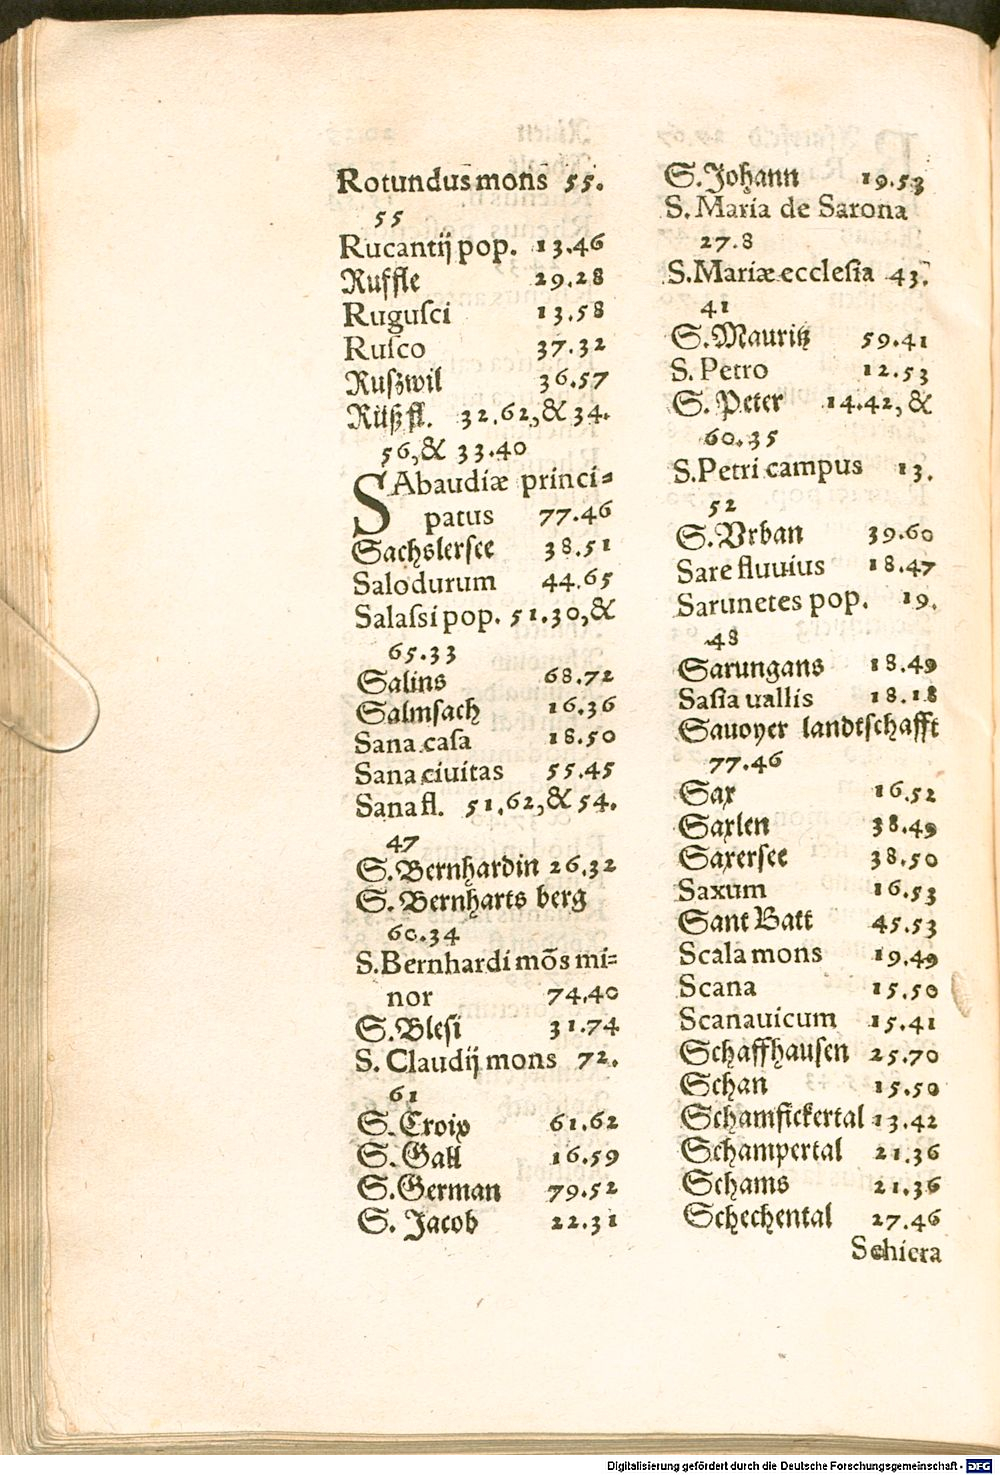 Rotundus mons 55.
55
Rucantij pop. 13.46
Ruffle 29.28
Rugusci 13.58
Rusco 37.32
Ruszwil 36.57
Rüß fl. 32.62,& 34.
56,& 33.40
SAbaudiæ princi=
patus 77.46
Sachslersee 38.51
Salodurum 44.65
Salaſsi pop. 51.30,&
65.33
Salins 68.72
Salmſach 16.36
Sana caſa 18.50
Sana ciuitas 55.45
Sana fl. 51.62,& 54.
47
S.Bernhardin 26.32
S. Bernharts berg
60.34
S.Bernhardi mõs mi=
nor 74.40
S.Bleſi 31.74
S. Claudij mons 72.
61
S. Croix 61.62
S. Gall 16.59
S.German 79.52
S. Jacob 22.31
S.Johann 19.53
S. Maria de Sarona
27.8
S.Mariæ eccleſia 43.
41
S.Mauritz 59.41
S. Petro 12.53
S. Peter 14.42,&
60.35
S.Petri campus 13.
52
S.Vrban 39.60
Sare fluuius 18.47
Sarunetes pop. 19.
48
Sarungans 18.49
Saſia uallis 18.18
Sauoyer landtſchafft
77.46
Sax 16.52
Saxlen 38.49
Saxersee 38.50
Saxum 16.53
Sant Batt 45.53
Scala mons 19.49
Scana 15.50
Scanauicum 15.41
Schaffhauſen 25.70
Schan 15.50
Schamfickertal 13.42
Schampertal 21.36
Schams 21.36
Schechental 27.46
Schiera
Digitalisierung gefördert durch die Deutsche Forschungsgemeinschaft - DFG